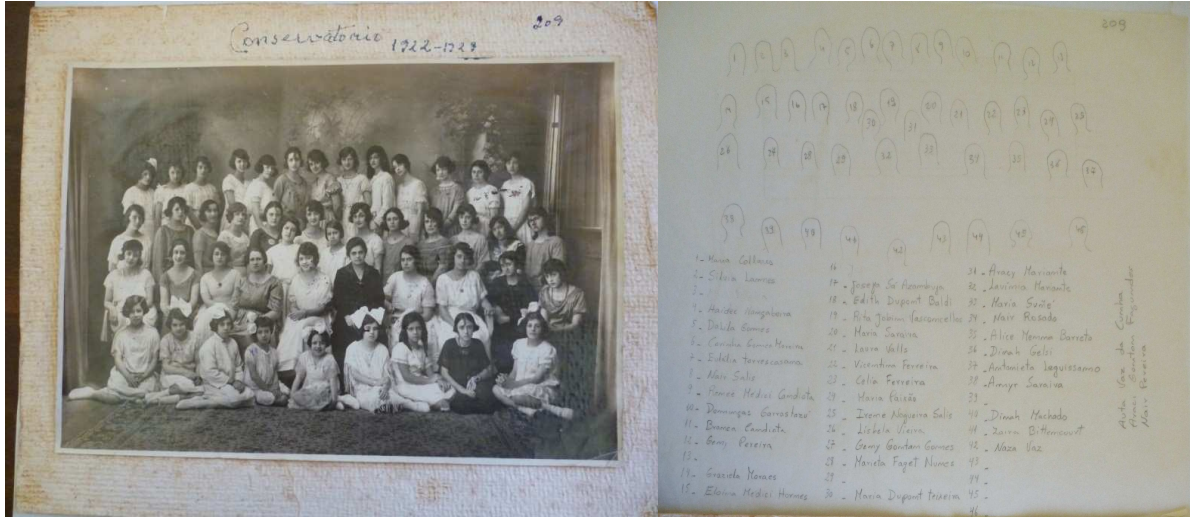 209
Conservatorio 1922-1928
209
1 2 3 4 5 6 7 8 9 10 11 12 13
14 15 16 17 18 19 20 21 22 23 24 25
30 31
26 27 28 29 32 33 34 35 36 37
38 39 40 41 42 43 44 45 46
1 - Maria
2 - Silvia
3 -
4 - Haidée
5 - Dalida Gomes
6 - Gomes Moreira
7 - Edélia
8 - Nair Salis
9 - Medici Candiota
10 - Domingas
11 - Branca Candiota
12 - Geny Pereira
13 -
14 - Graziela Moraes
15 - Medici Hormes
16
17 - Sá Azambuja
18 - Edith Dupont Baldi
19 - Rita Jobim Vasconcellos
20 - Maria Saraiva
21 - Laura Valls
22 - Vicentina Ferreira
23 - Celia Ferreira
24 - Maria Paixão
25 - Irene Nogueira Salis
26 - Lisbela Vieira
27 - Gemy Gomes
28 - Marieta Faget Nunes
29 -
30 - Maria Dupont Teixeira
31 - Aracy Mariante
32 - Lavinia Mariante
33 - Maria Señé
34 - Nair Rosado
35 - Alice Menna Barreto
36 - Dinah Galsi
37 - Antonieta Leguissamo
38 - Amayr Saraiva
39 -
40 - Dinah Machado
41 - Zaira Bittencourt
42 - Naza Vaz
43 -
44 -
45 -
46 -
Auta Vaz da Cunha
Fagundes
Nair Ferreira